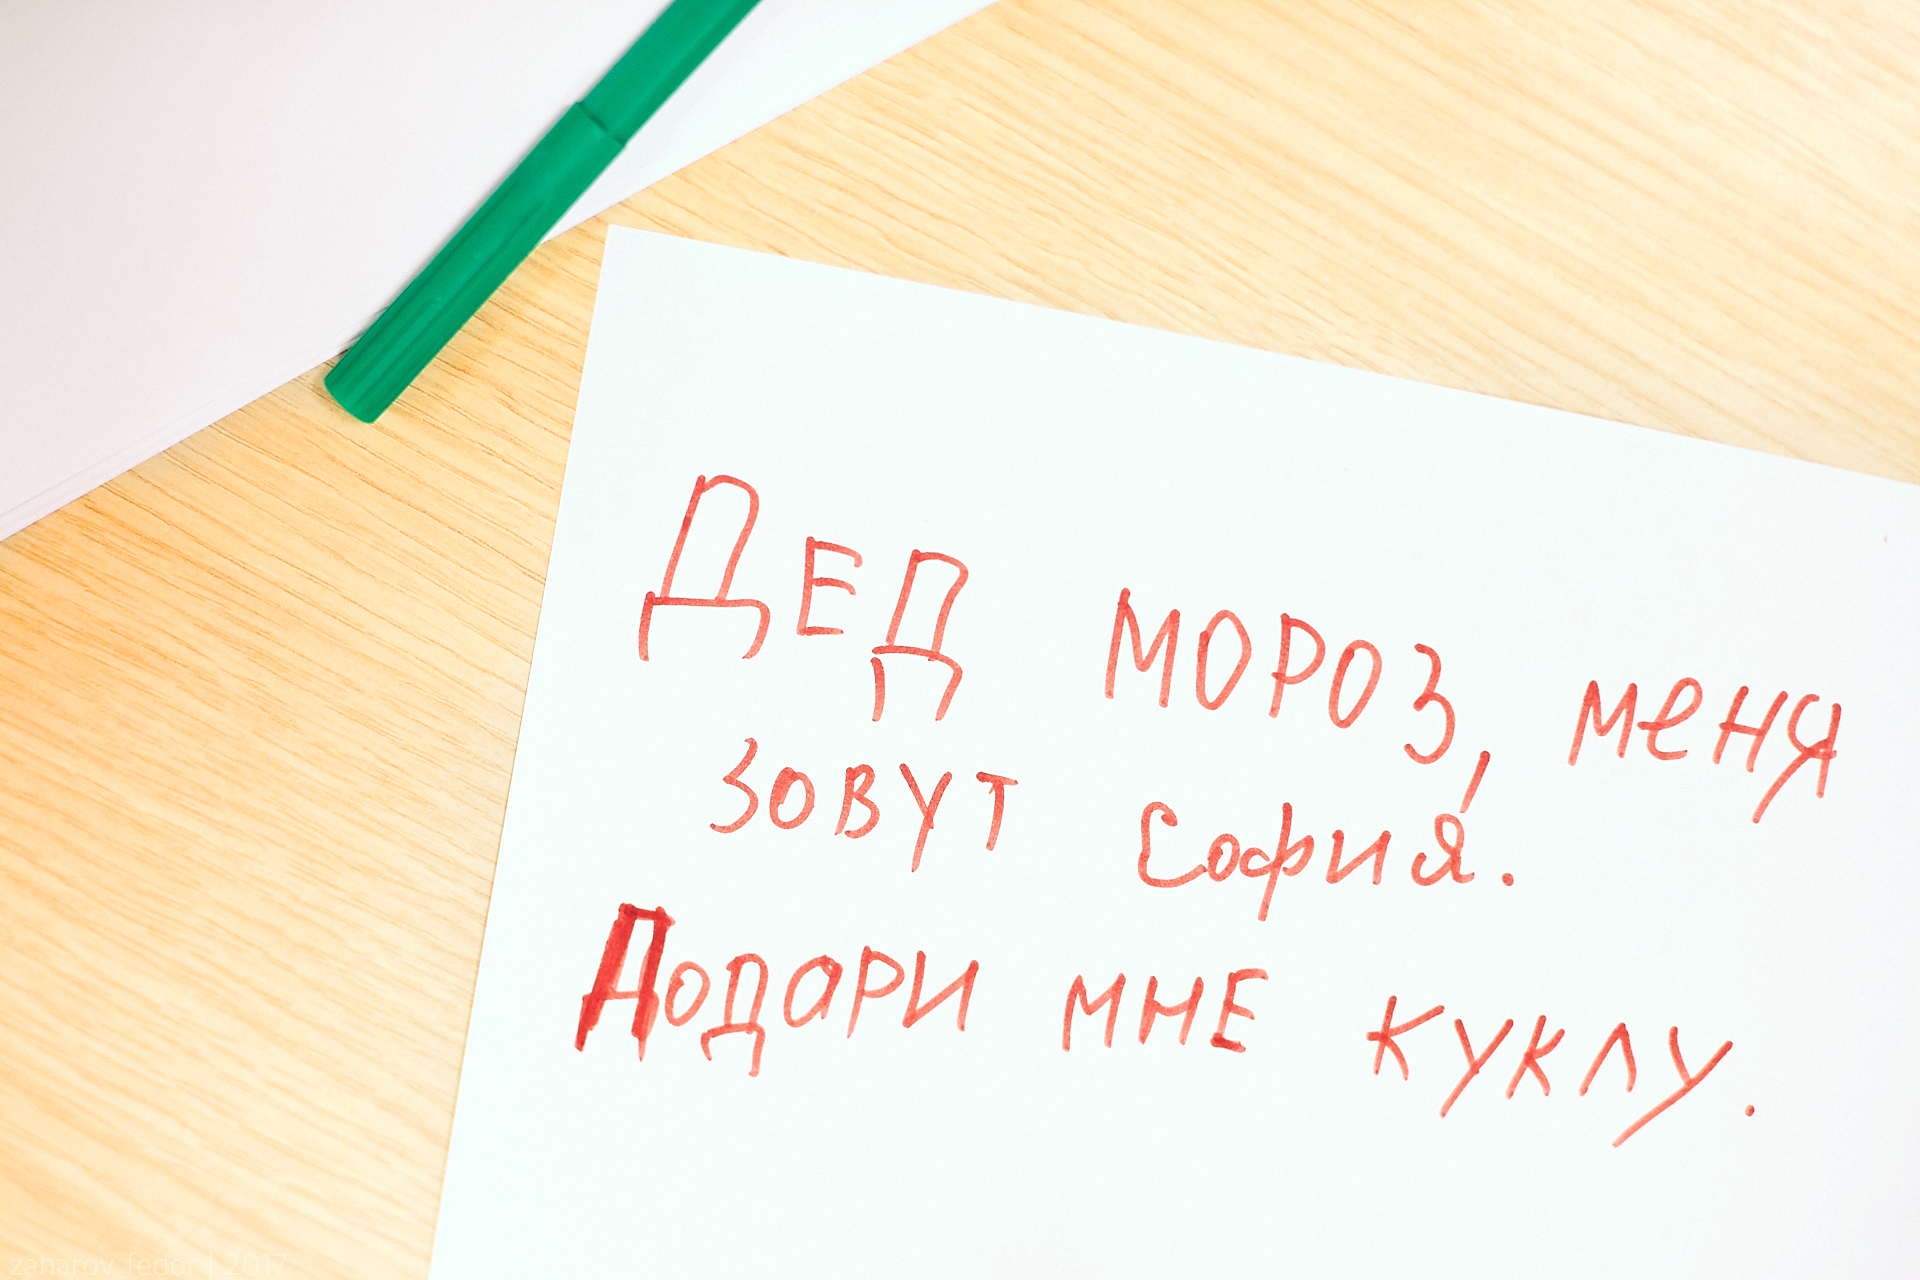 ДЕД МОРОЗ, меня
зовут София.
Додари мне куклу.
zaharov_fedor | 2017